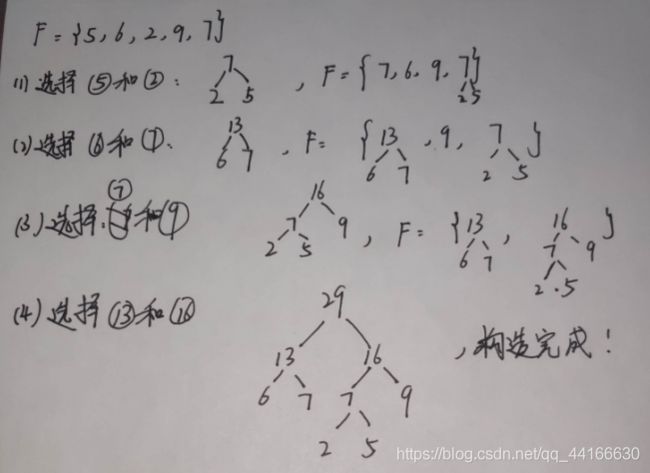 F = {5, 6, 2, 9, 7}
(1) 选择⑤和②: 7 , F = { 7, 6, 9, 7}
2 5 2 5
(2) 选择⑥和⑦: 13 , F = { 13 , 9, 7 }
6 7 6 7 2 5
(3) 选择⑦和⑨ 16 , F = { 13 , 16 }
7 9 6 7 7 9
2 5 2 5
(4) 选择⑬和⑯ 29
13 16 , 构造完成!
6 7 7 9
2 5
https://blog.csdn.net/qq_44166630